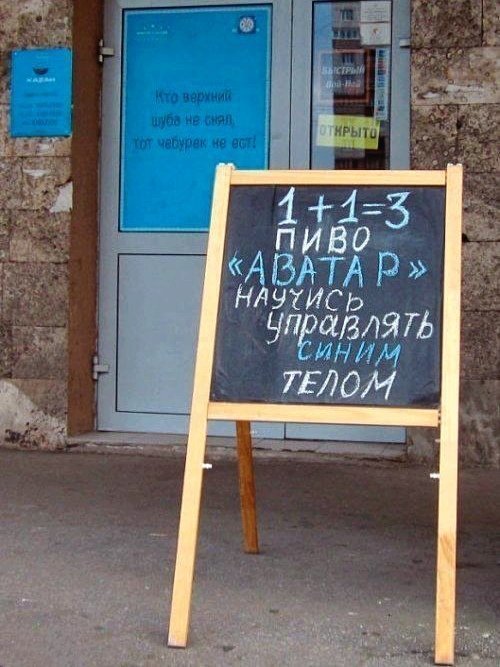 Кто верхний
шуба не снял,
тот чебурек не ест!
БЫСТРЫЙ
Wi-Fi
ОТКРЫТО
1+1=3
ПИВО
«АВАТАР»
НАУЧИСЬ
УПРАВЛЯТЬ
СИНИМ
ТЕЛОМ